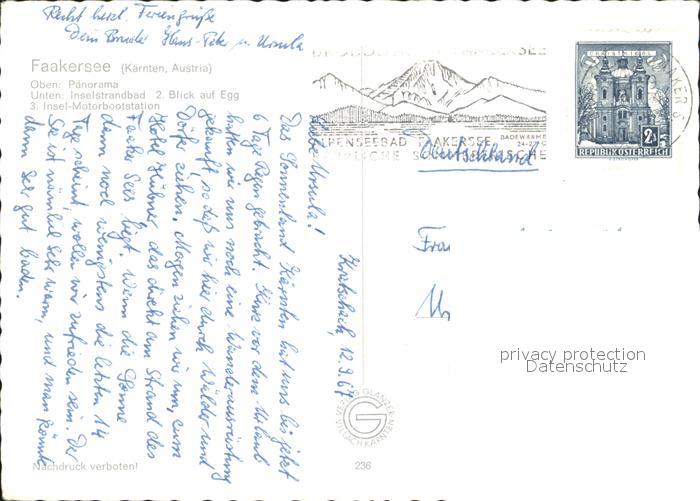 Recht herzl. Feriengrüße
Dein Bruder Hans-Peter u. Ursula
Faakersee (Kärnten, Austria)
Oben: Panorama
Unten: Inselstrandbad 2. Blick auf Egg
3. Insel-Motorbootstation
FAAKERSEE
ALPENSEEBAD FAAKERSEE
BADEWÄRME
24-27°C
CHRISTKINDL
2S
REPUBLIK ÖSTERREICH
Deutschland
Frau
Kratschach, 12.9.67
Liebe Ursula!
Das Sonnenland Kärnten hat uns bis jetzt
6 Tage Regen gebracht. Ganz vor dem Urlaub
hatten wir uns noch eine Wanderausrüstung
gekauft, so daß wir hier durch Wälder und
Dörfer ziehen. Morgen ziehen wir um, zum
Hotel Hübner, das direkt am Strand des
Faaker Sees liegt. Wenn die Sonne
dann noch wenigstens die letzten 14
Tage scheint, wollen wir zufrieden sein. Der
See ist nämlich sehr warm, und man könnte
dann sehr gut baden.
VERLAG GLANZER
VILLACH KÄRNTEN
G
Nachdruck verboten!
236
privacy protection
Datenschutz